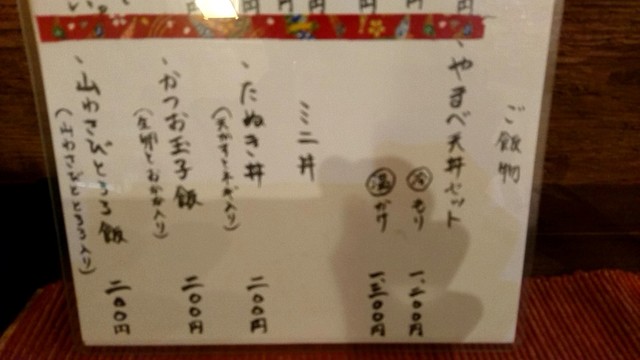 ご飯物
・やまべ天丼セット
冷 もり 一、二〇〇円
温 かけ 一、三〇〇円
ミニ丼
・たぬき丼 二〇〇円
（天かすとネギ入り）
・かつお玉子飯 二〇〇円
（生卵とおかか入り）
・山わさびとろろ飯 二〇〇円
（山わさびととろろ入り）